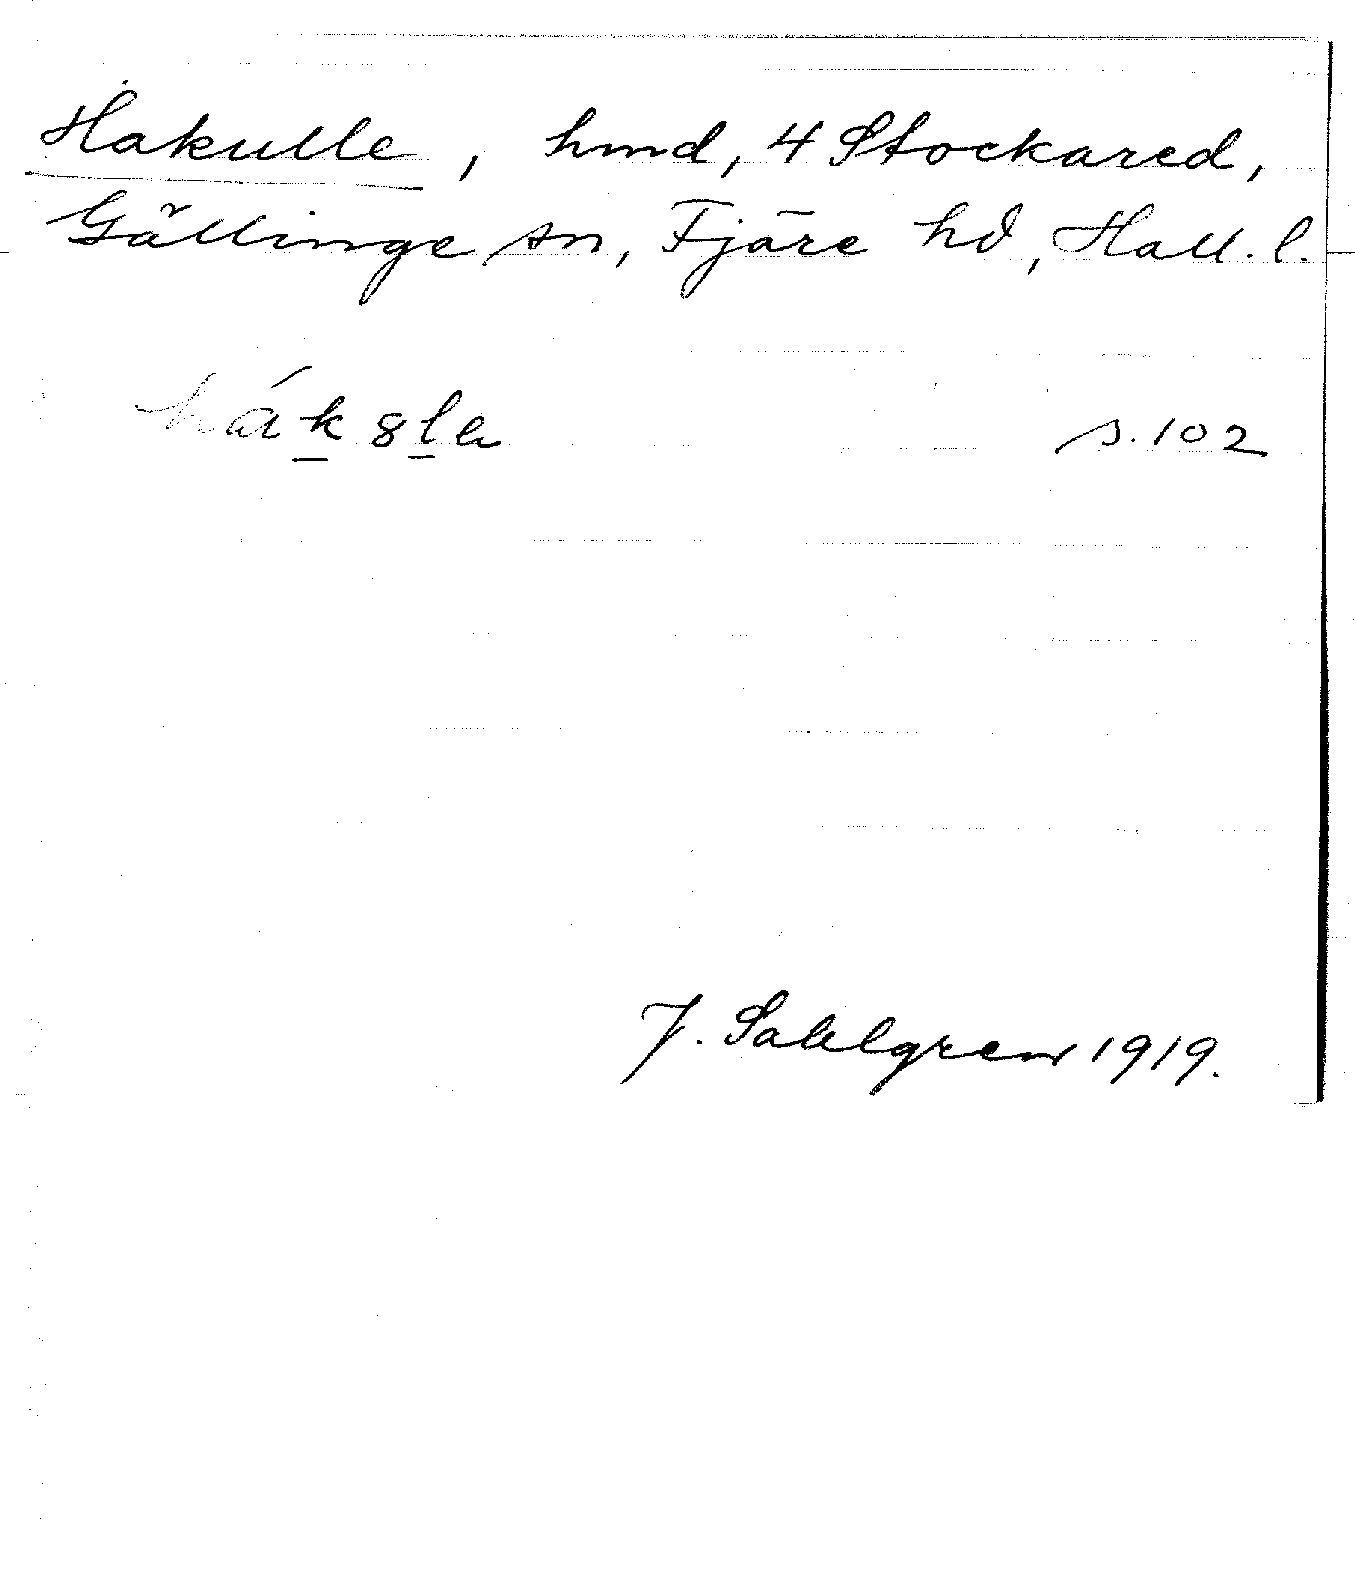 Hakulle, hmd, 4 Stockared,
Gällinge sn, Fjäre hd, Hall. l.
hák8la s.102
J. Sahlgren 1919.